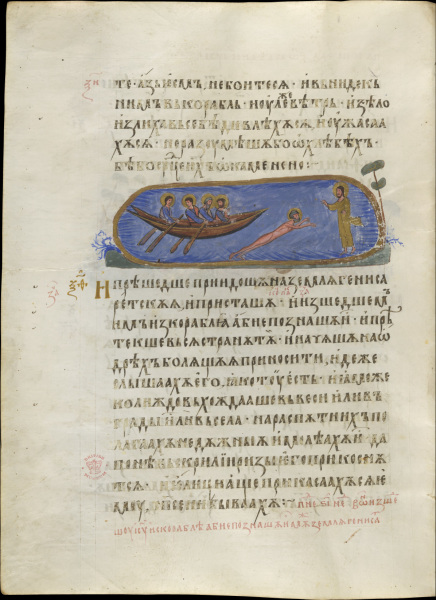 те · азъ есмъ, не боитесѧ · и вънидекъ
нимъ въ корабль · и оулеже вѣтръ · и ѕѣло
излиха въ себѣ дивлѣхѫсѧ, и оужасаа
хѫсѧ · не разоумѣшѧ бо ѡ хлѣбѣхъ ·
бѣ бо срⷣце ихъ ѡкаменено :
И прѣшедше приидошѫ на землѧ гениса
ретскѫѧ, и присташѧ · и изшедшемъ
имъ ис кораблѣ абие познашѧ и · и прѣ
текше вьсѧ странѫ тѫ · и начѧшѧ на ѡ
дрѣхъ болѧщѫѧ приносити, идеже
слышаахѫ его, ꙗко тоу есть · и аможе
колиждо въхождааше въ веси или въ
грады или въ села · на распѫтиихъ по
лагаахѫ недѫжныѧ и молѣхѫ и да
поне въскрилии ризы его прикоснѫ
тсѧ · и елици аще прикасаахѫсѧ е
моу, спⷭени бывахѫ :